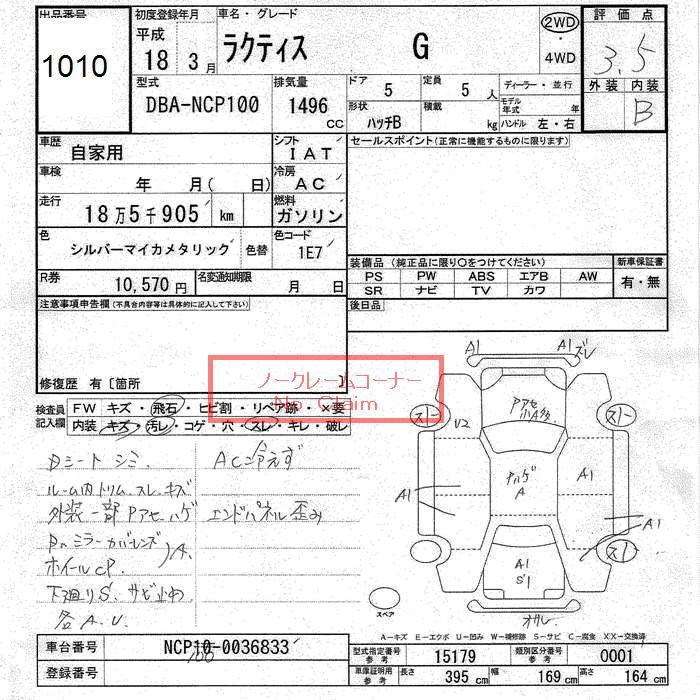 出品番号 初度登録年月 車名・グレード 2WD 評価点
1010 平成 18年 3月 ラクティス G ・ 4WD 3.5
型式 排気量 ドア 定員 ディーラー・並行 外装 内装
DBA-NCP100 1496 CC 5 5人 モデル年式 年 B
形状 ハッチB 積載 kg ハンドル 左・右
車歴 自家用 シフト IAT セールスポイント(正常に機能するものに限ります)
車検 年 月( 日) 冷房 AC
走行 18万5千905 km 燃料 ガソリン
色 シルバーマイカメタリック 色替 色コード 1E7
装備品(純正品に限り○をつけてください) 新車保証書
PS PW ABS エアB AW 有・無
SR ナビ TV カワ
R券 10,570円 名変通知期限 月 日
後日品
注意事項申告欄(不具合内容等は具体的に記入して下さい)
修復歴 有〔箇所 〕
ノークレームコーナー
No Claim
検査員記入欄 FW キズ・飛石・ヒビ割・リペア跡・×要
内装 キズ・汚レ・コゲ・穴・スレ・キレ・破レ
Dシートシミ. AC冷えず
ルーム内トリム.スレ.キズ
外装一部Pアセハゲ エンドパネル歪み
ミラーカバーレンズ)A.
ホイールCP.
下廻りS.サビ止め
各A.U.
A1 A1 ズレ
スエ スエ
U2 Pアセ
A1 ハゲ A A1
A1
スエ
A1 S1
オサレ
スペア
A-キズ E-エクボ U-凹み W-補修跡 S-サビ C-腐食 XX-交換済
車台番号 NCP10-0036833
100
登録番号
型式指定番号 参考 15179 類別区分番号 参考 0001
車庫証明用 参考 長さ 395 cm 幅 169 cm 高さ 164 cm